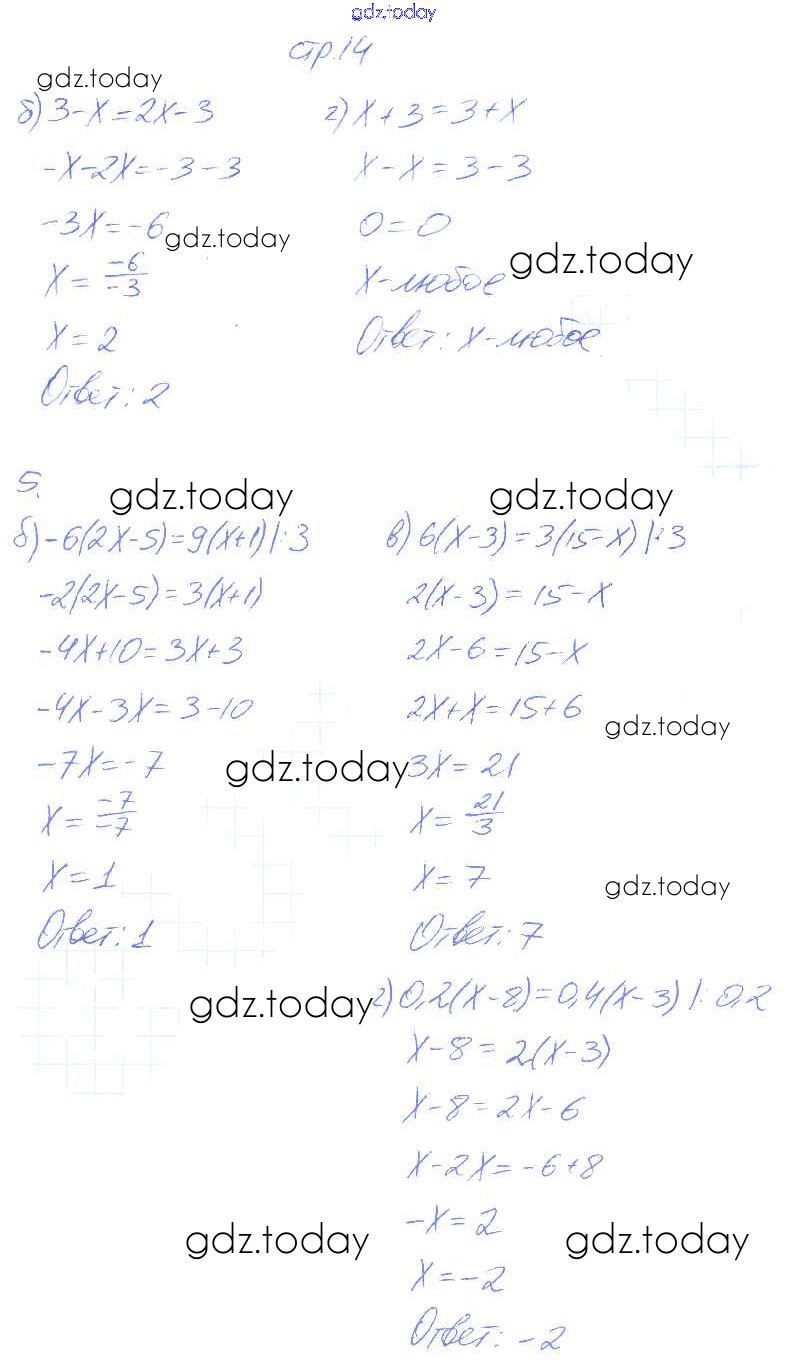 gdz.today
стр.14
gdz.today
б) 3-x=2x-3
-x-2x=-3-3
-3x=-6
gdz.today
x= -6/-3
x=2
Ответ: 2
г) x+3=3+x
x-x=3-3
0=0
gdz.today
x-любое
Ответ: x-любое
5.
gdz.today
gdz.today
б) -6(2x-5)=9(x+1) |:3
-2(2x-5)=3(x+1)
-4x+10=3x+3
-4x-3x=3-10
-7x=-7
gdz.today
x= -7/-7
x=1
Ответ: 1
в) 6(x-3)=3(15-x) |:3
2(x-3)=15-x
2x-6=15-x
2x+x=15+6
gdz.today
3x=21
x= 21/3
x=7
gdz.today
Ответ: 7
gdz.today
г) 0,2(x-8)=0,4(x-3) |:0,2
x-8=2(x-3)
x-8=2x-6
x-2x=-6+8
-x=2
gdz.today
gdz.today
x=-2
Ответ: -2